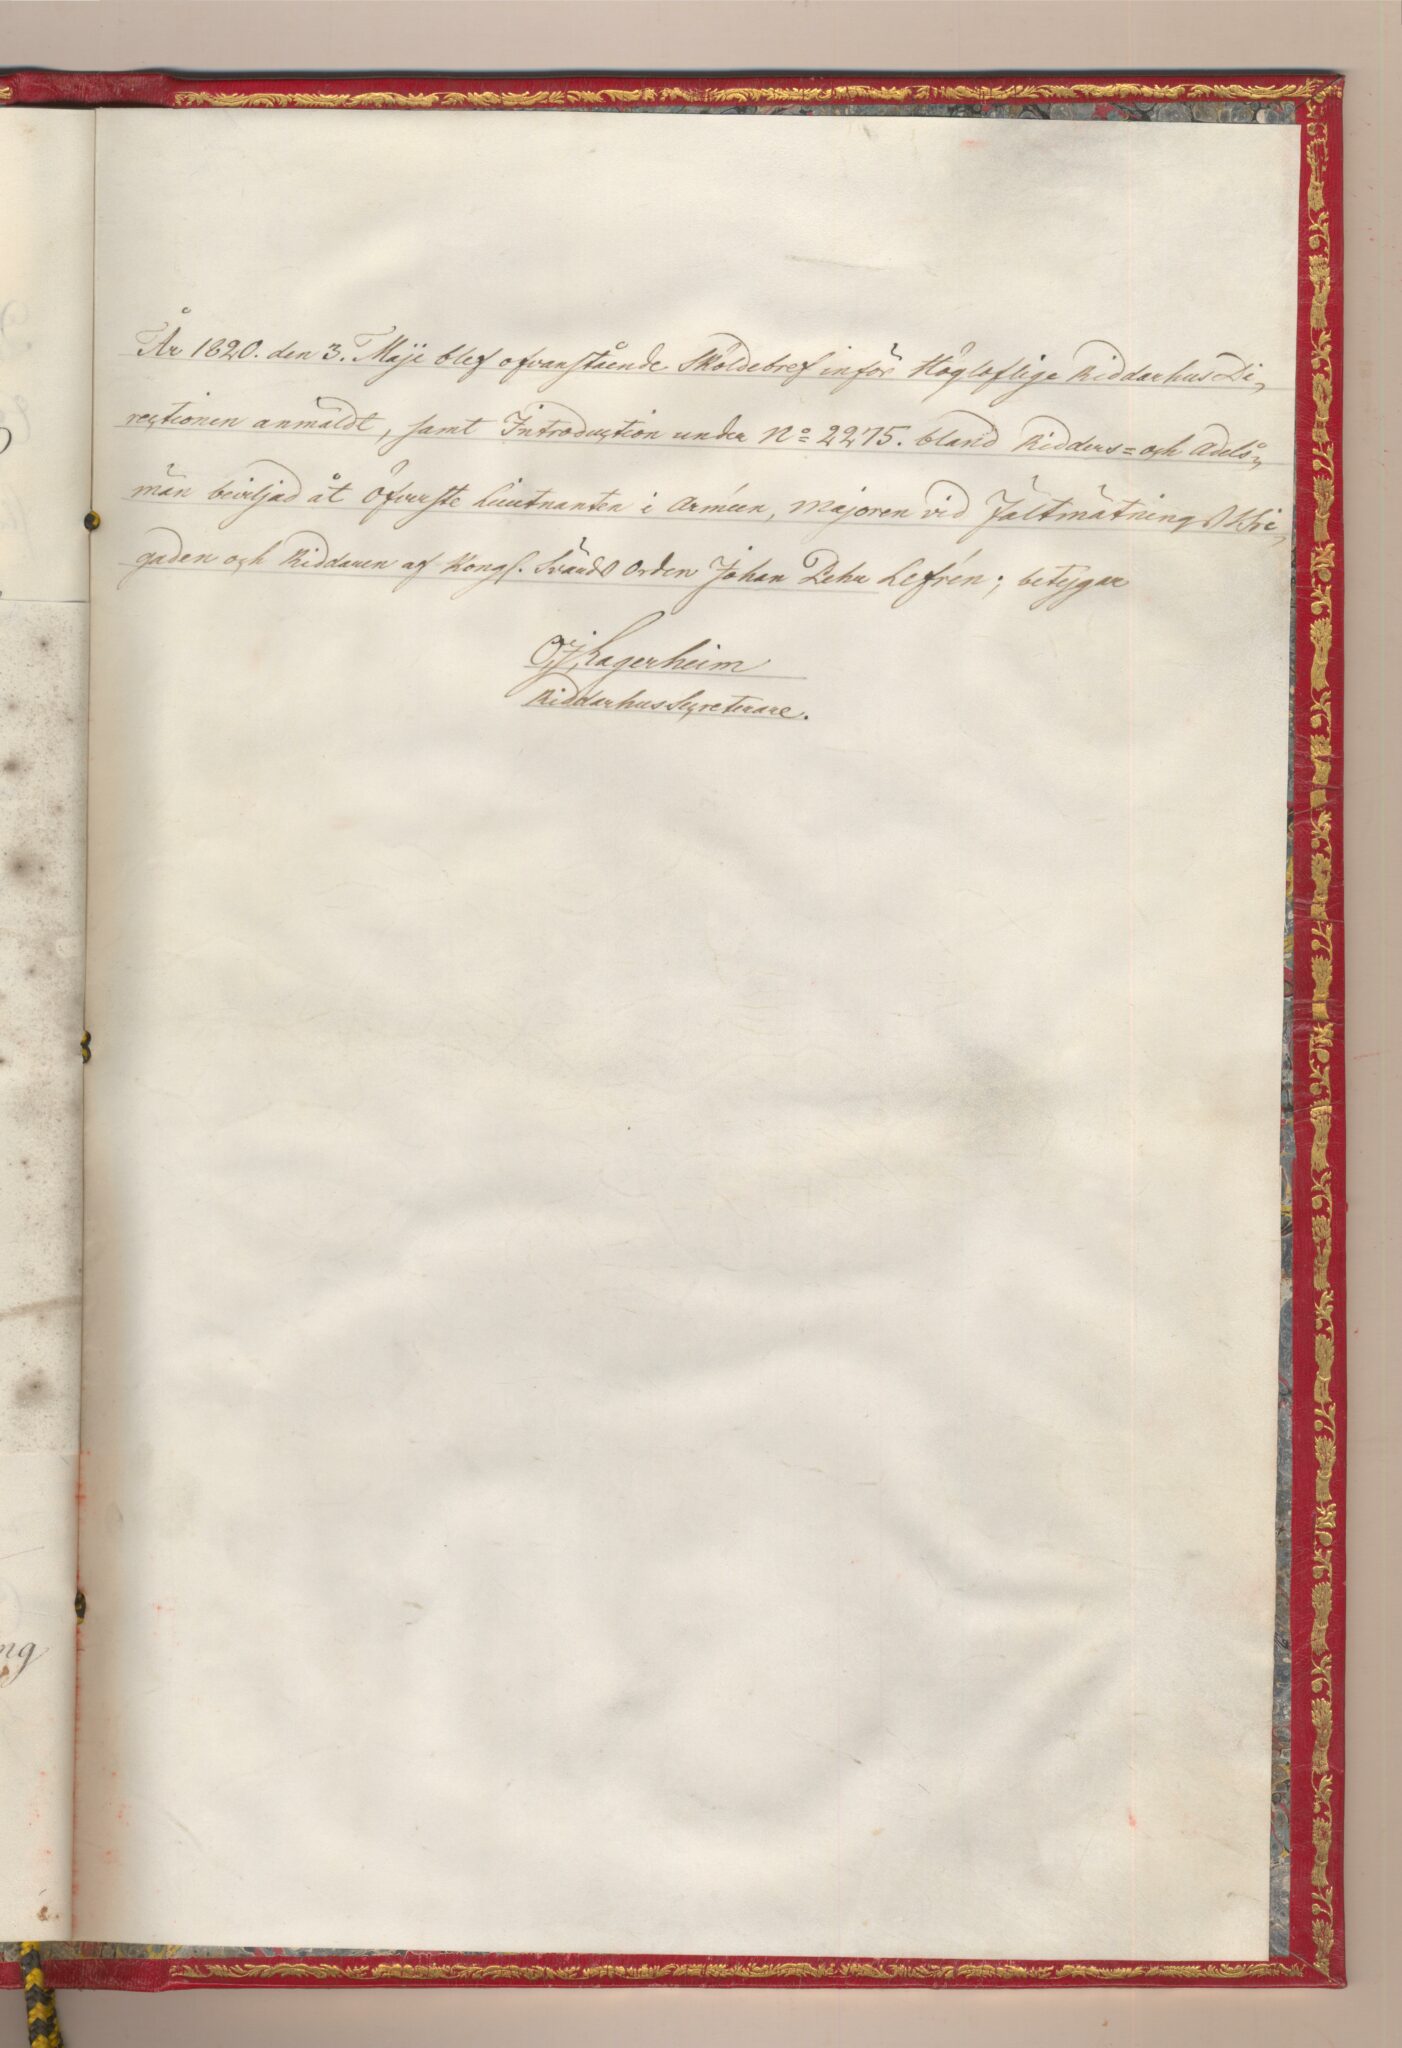 År 1820. den 3. Maji blef ofvanstående Sköldebref inför Högloflige Riddarhus Di-
rectionen anmäldt, samt Introduction under No 2275. bland Ridders= och Adels-
män beviljad åt Öfverste Lieutnanten i Arméen, Majoren vid Fältmätnings Bri-
gaden och Riddaren af Kongl. Svärds Orden Johan Pehr Lefrén; betygar
Lagerheim
Riddarhus Secreterare.
ng